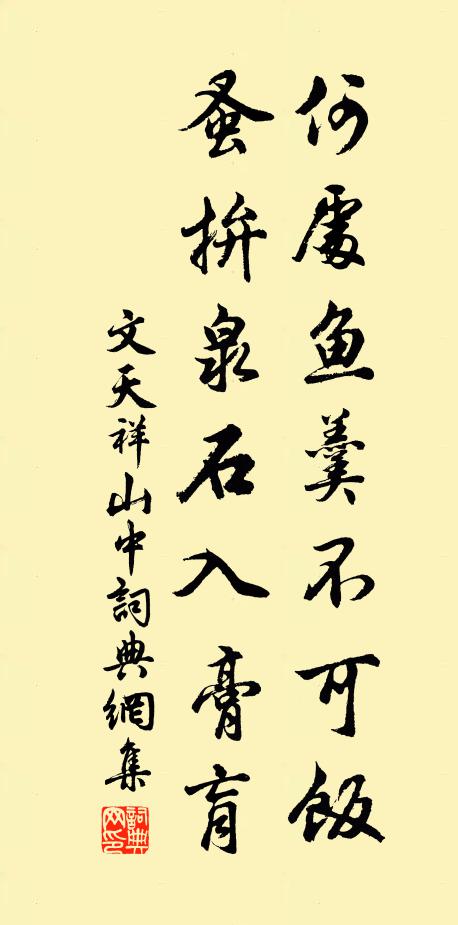 何處鱼羹不可飯
蚤拚泉石入膏肓
文天祥山中詞典網集
詞典
网印